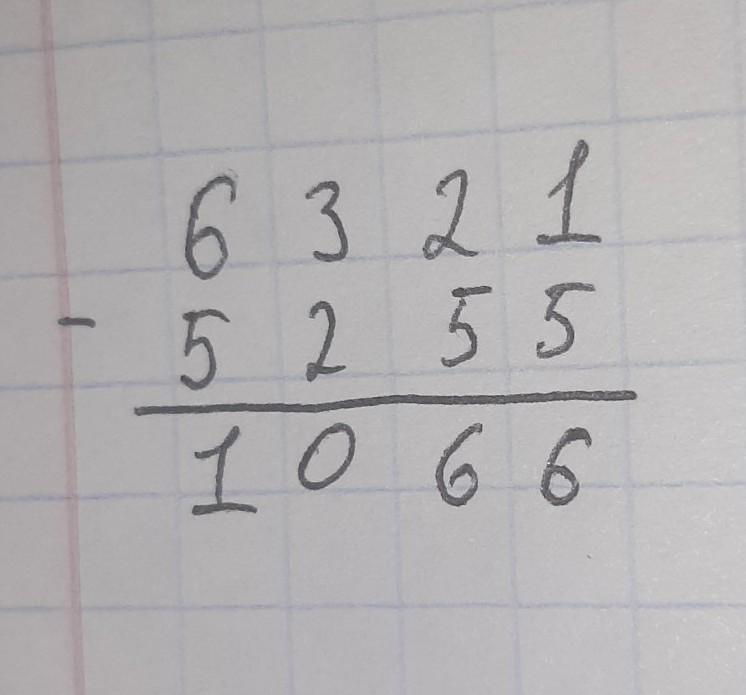 6321
-
5255
1066